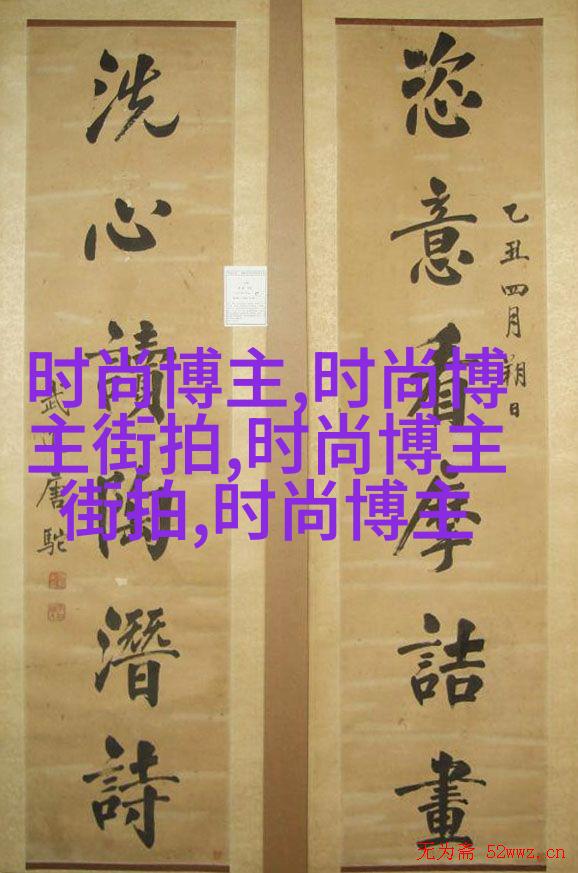 恣意看摩詰畫
乙丑四月朔日
洗心讀陶潛詩
武進唐駝
时尚博主,时尚博
主街拍,时尚博主
街拍,时尚博主
无为斋 52wwz.cn